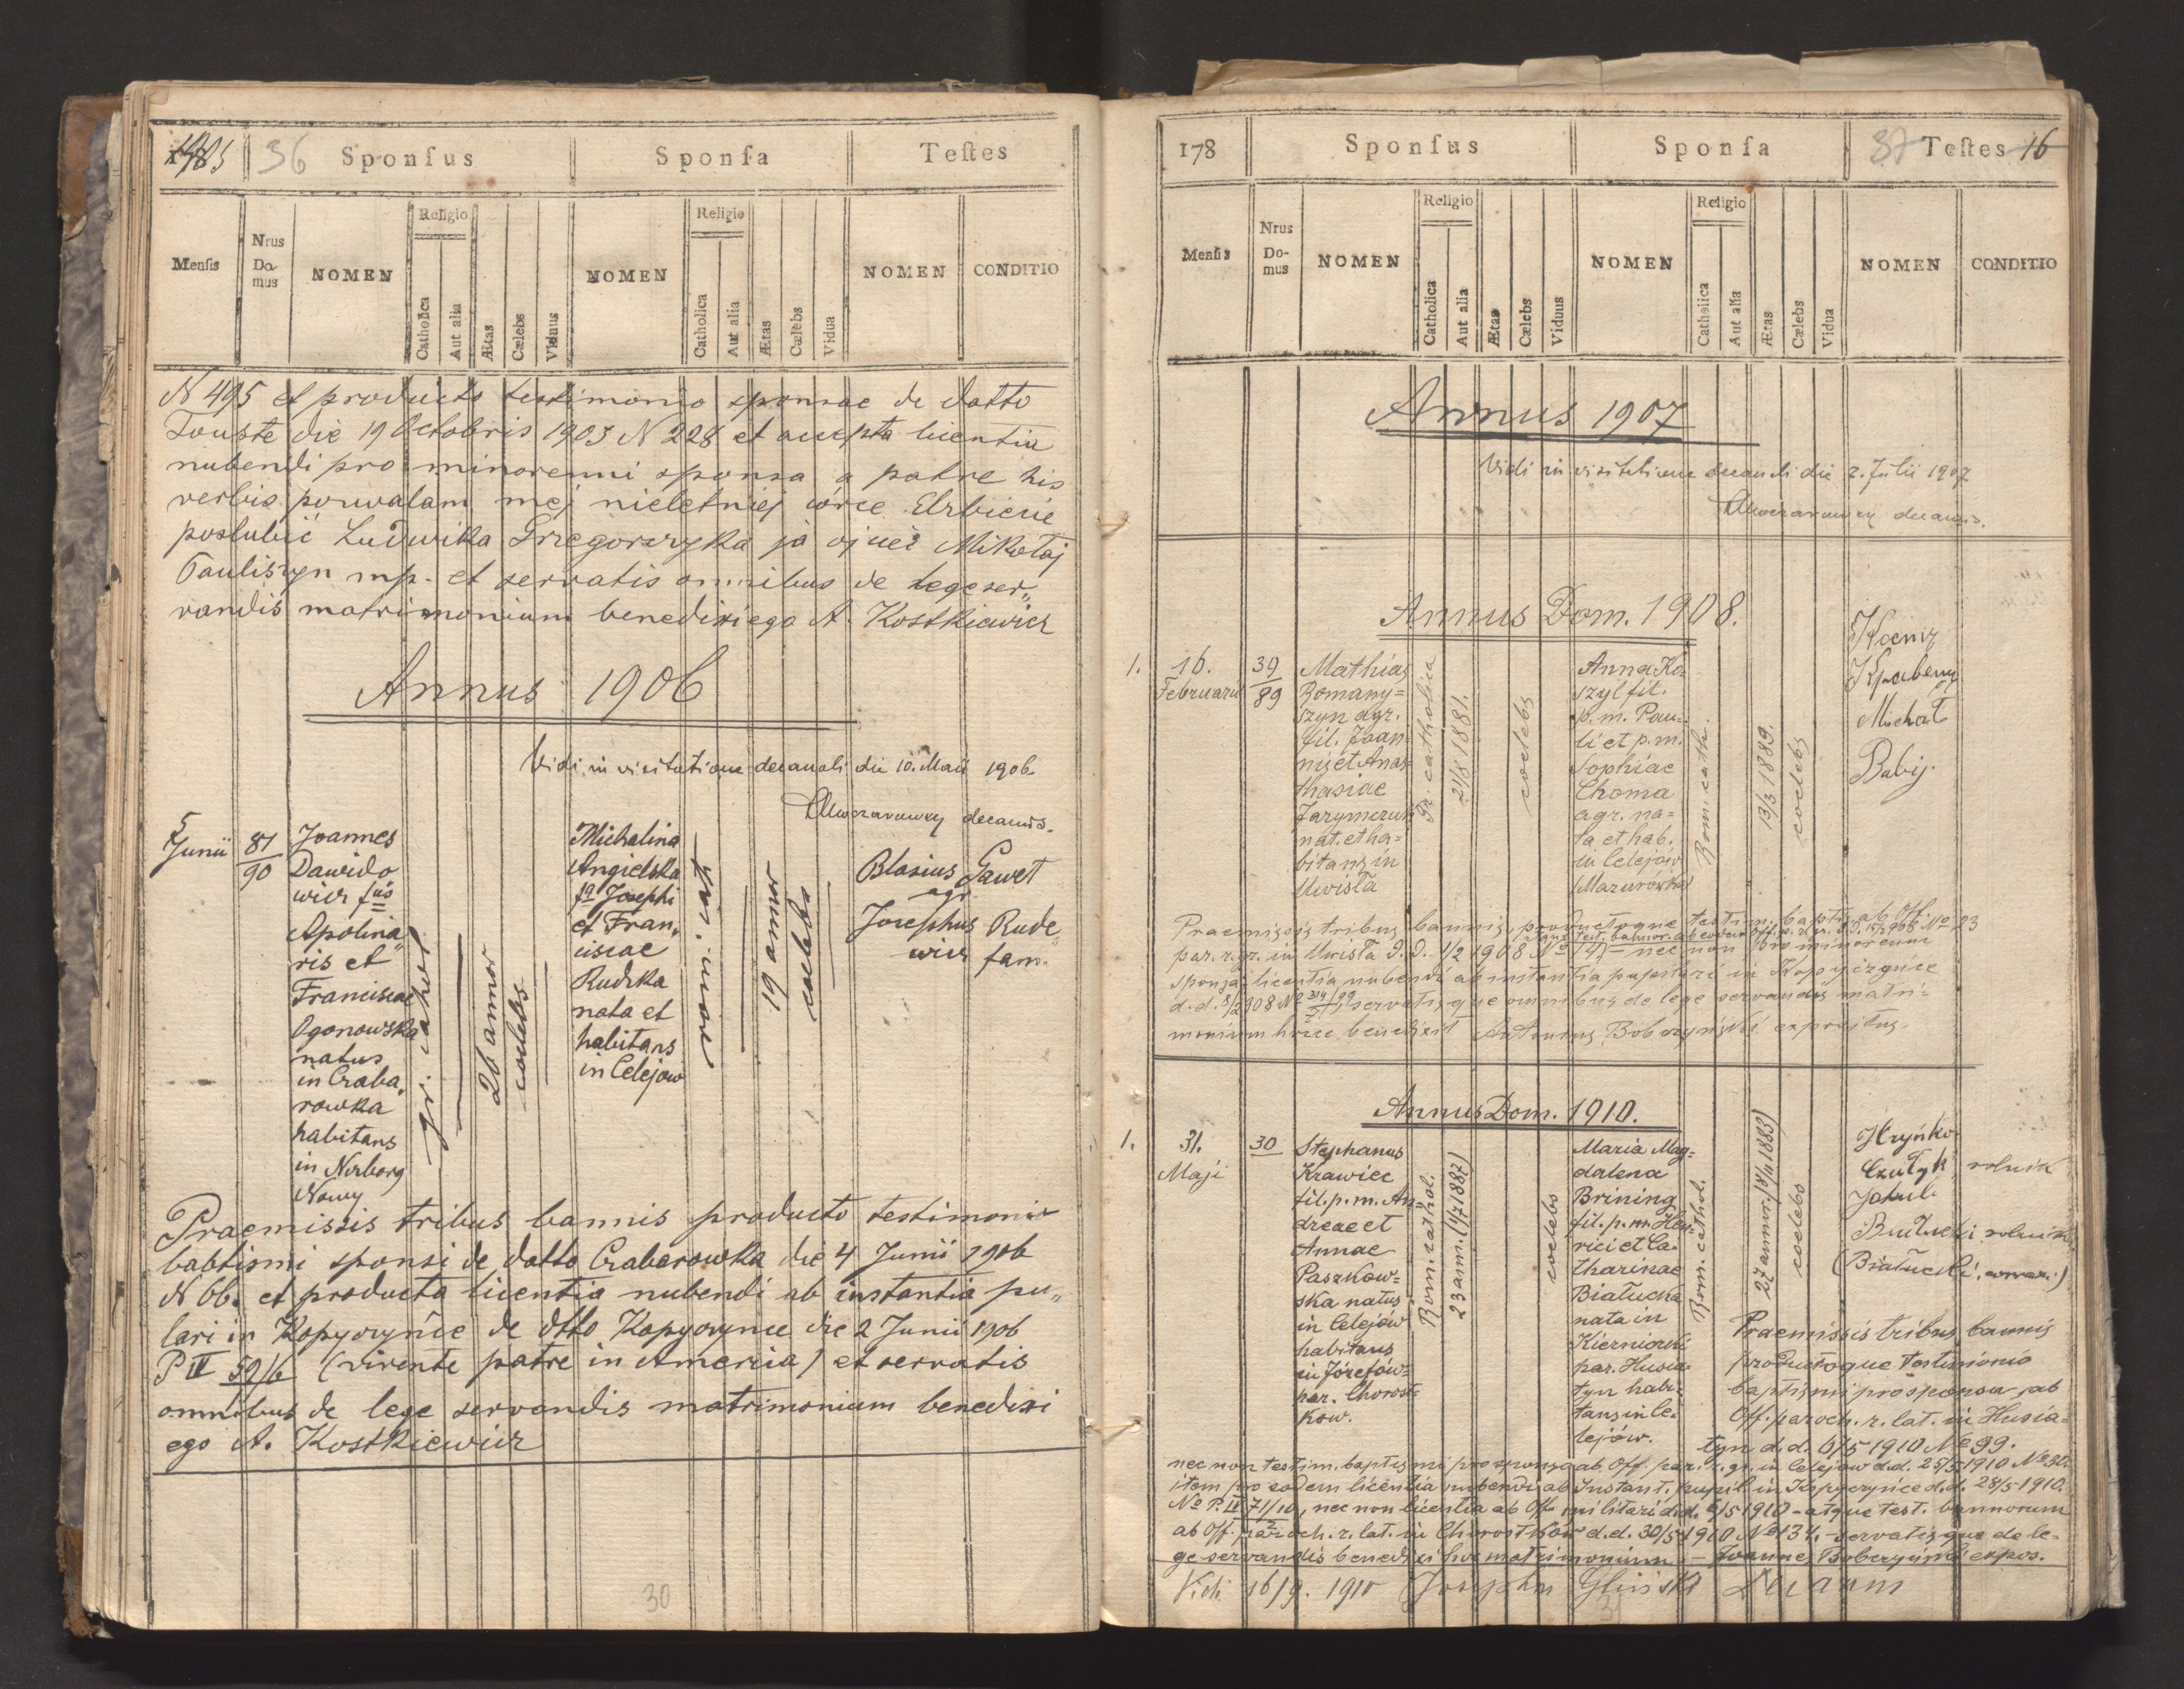 1905 36 Sponsus Sponsa Testes
Mensis Nrus Domus NOMEN Religio Catholica Aut alia Ætas Cælebs Viduus NOMEN Religio Catholica Aut alia Ætas Cælebs Vidua NOMEN CONDITIO
N 495 et producto testimonio sponsae de datto
Touste die 19 Octobris 1905 N 228 et accepta licentia
nubendi pro minorenni sponsa a patre his
verbis pozwalam mej nieletniej córce Elzbiecie
poslubić Ludwika Grzegorczyka ja ojciec Mikołaj
Pauliszyn mp. et servatis omnibus de lege ser„
vandis matrimonium benedixi ego A. Kostkiewicz
Annus 1906
Vidi in visitatione decanali die 10. Maii 1906
decanus.
5
Junii
87
90
Joannes
Dawido
wicz fus
Apolina„
ris et
Franciscae
Ogonowska
natus
in Graba„
rowka
habitans
in Nirborg
Nowy
gr. cathol
26 annor
coelebs
Michalina
Angielska
fa Josephi
et Fran„
ciscae
Rudzka
nata et
habitans
in Celejow
rom. cath
19 annor
coelebs
Blasius Gaweł
agr
Josephus Rude„
wicz fam.
Praemissis tribus bannis producto testimonio
babtismi sponsi de datto Grabarowka die 4 Junii 1906
N 66. et producta licentia nubendi ab instantia pu„
lari in Kopyczyńce de dtto Kopyczynce die 2 Junii 1906
P IV 59/6 (vivente patre in America) et servatis
omnibus de lege servandis matrimonium benedixi
ego A. Kostkiewicz
30
178 Sponsus Sponsa 37 Testes 16
Mensis Nrus Domus NOMEN Religio Catholica Aut alia Ætas Cælebs Viduus NOMEN Religio Catholica Aut alia Ætas Cælebs Vidua NOMEN CONDITIO
Annus 1907
Vidi in visitatione decanali die 2. Julii 1907
decanus.
Annus Dom. 1908.
1.
16.
Februarii
39
89
Mathias
Romany=
szyn agr.
fil. Joan
nis et Anas
thasiae
Jarymczuk
nat. et ha=
bitans in
Uwisła
Gr. catholica
21/8 1881.
coelebs
Anna Ko
szyl fil.
p. m. Pau=
li et p. m.
Sophiae
Choma
agr. na=
ta et hab.
in Celejów
(Mazurówka)
Rom. cath.
13/3 1889.
coelebs
Michał
Babij.
Praemissis tribus bannis, productoque testim. baptis. ab Off.
par. r. gr. in Uwisła d. d. 1/2 1908 No 147 - nec non pro minorenni
sponsa licentia nubendi ab instantia pupillari in Kopyczyńce
d. d. 8/2 1908 No servatisque omnibus de lege servandis matri=
monium hocce benedixit Antonius Bobczyński expositus.
Annus Dom. 1910.
1.
31.
Maji
30
Stephanus
Krawiec
fil. p. m. An=
dreae et
Annae
Paszkow=
ska natus
in Celejów
habitans
in Józefów=
par. Chorost=
kow.
Rom. cathol.
23 ann. (4/7 1887)
coelebs
Maria Mag=
dalena
Brining
fil. p. m. Hen=
rici et Ca=
tharinae
Białucka
nata in
par. Husia=
tyn habi=
tans in Ce=
lejów.
Rom. cathol.
27 annor. (18/11 1883)
coelebs
Hryńko
Czutyk rolnik
Jakub
Białucki rolnik
(Białucki)
Praemissis tribus bannis
productoque testimonio
baptismi pro sponsa ab
Off. paroch. r. lat. in Husia=
tyn d. d. 6/5 1910 No 99.
nec non testim. baptismi pro sponso ab Off. par. r. gr. in Celejów d.d. 25/5 1910 No 30.
item pro eodem licentia nubendi ab Instant. pupil. in Kopyczyńce d.d. 28/5 1910.
No P. IV 71/10, nec non licentia ab Off. militari d.d. 6/5 1910 - atque test. bannorum
ab Off. paroch. r. lat. in Chorostków d.d. 30/5 1910 No 134. - servatisque de le=
ge servandis benedixi hoc matrimonium. - Joannes Bobczyński expos.
Vidi 16/9. 1910 Josephus Gliński Decanus
31